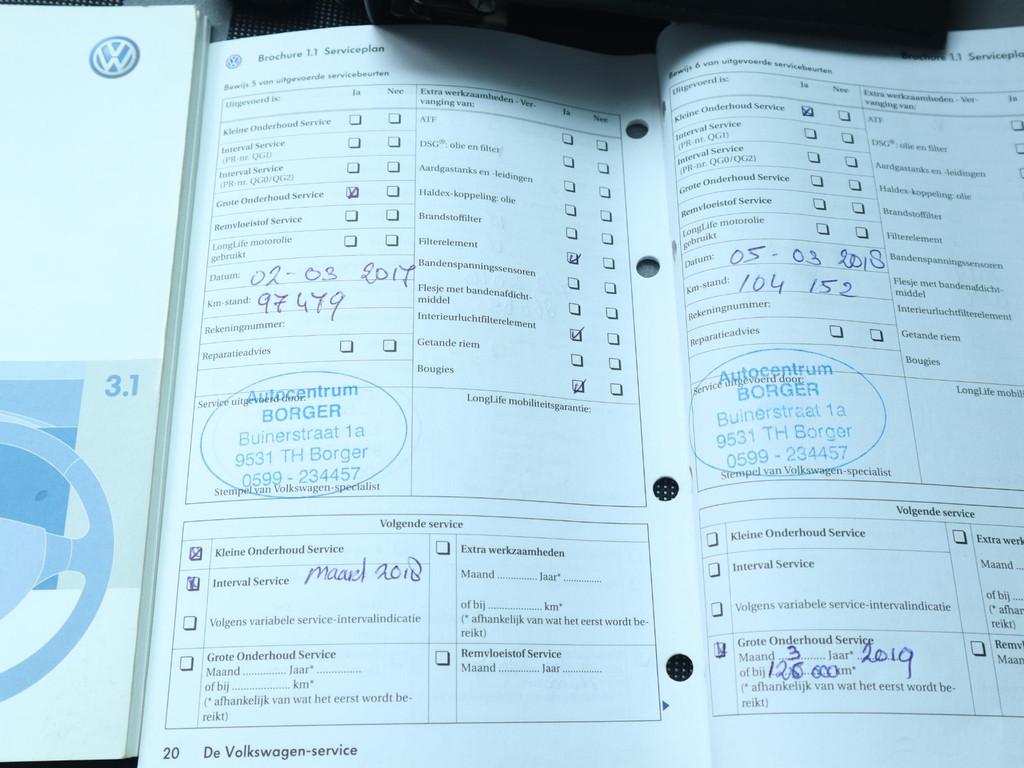 3.1
Brochure 1.1 Serviceplan
Bewijs 5 van uitgevoerde servicebeurten
Uitgevoerd is: Ja Nee
Kleine Onderhoud Service
Interval Service
(PR-nr. QG1)
Interval Service
(PR-nr. QG0/QG2)
Grote Onderhoud Service
Remvloeistof Service
LongLife motorolie
gebruikt
Datum: 02-03 2017
Km-stand: 97479
Rekeningnummer:
Reparatieadvies
Service uitgevoerd door:
Autocentrum
BORGER
Buinerstraat 1a
9531 TH Borger
0599 - 234457
Stempel van Volkswagen-specialist
Extra werkzaamheden - Ver-
vanging van: Ja Nee
ATF
DSG®: olie en filter
Aardgastanks en -leidingen
Haldex-koppeling: olie
Brandstoffilter
Filterelement
Bandenspanningssensoren
Flesje met bandenafdicht-
middel
Interieurluchtfilterelement
Getande riem
Bougies
LongLife mobiliteitsgarantie:
Volgende service
Kleine Onderhoud Service
Interval Service Maart 2018
Volgens variabele service-intervalindicatie
Grote Onderhoud Service
Maand .............. Jaar* ..............
of bij .................... km*
(* afhankelijk van wat het eerst wordt be-
reikt)
Extra werkzaamheden
Maand ............. Jaar* .............
of bij .................. km*
(* afhankelijk van wat het eerst wordt be-
reikt)
Remvloeistof Service
Maand ............. Jaar .............
20 De Volkswagen-service
Brochure 1.1 Serviceplan
Bewijs 6 van uitgevoerde servicebeurten
Uitgevoerd is: Ja Nee
Kleine Onderhoud Service
Interval Service
(PR-nr. QG1)
Interval Service
(PR-nr. QG0/QG2)
Grote Onderhoud Service
Remvloeistof Service
LongLife motorolie
gebruikt
Datum: 05-03 2018
Km-stand: 104 152
Rekeningnummer:
Reparatieadvies
Service uitgevoerd door:
Autocentrum
BORGER
Buinerstraat 1a
9531 TH Borger
0599 - 234457
Stempel van Volkswagen-specialist
Extra werkzaamheden - Ver-
vanging van: Ja
ATF
DSG®: olie en filter
Aardgastanks en -leidingen
Haldex-koppeling: olie
Brandstoffilter
Filterelement
Bandenspanningssensoren
Flesje met bandenafdicht-
middel
Interieurluchtfilterelement
Getande riem
Bougies
LongLife mobili
Volgende service
Kleine Onderhoud Service
Interval Service
Volgens variabele service-intervalindicatie
Grote Onderhoud Service
Maand 3 Jaar* 2019
of bij km*
(* afhankelijk van wat het eerst wordt be-
reikt)
Extra werk
Maand
of bij
(* afhan
reikt)
Remvl
Maan